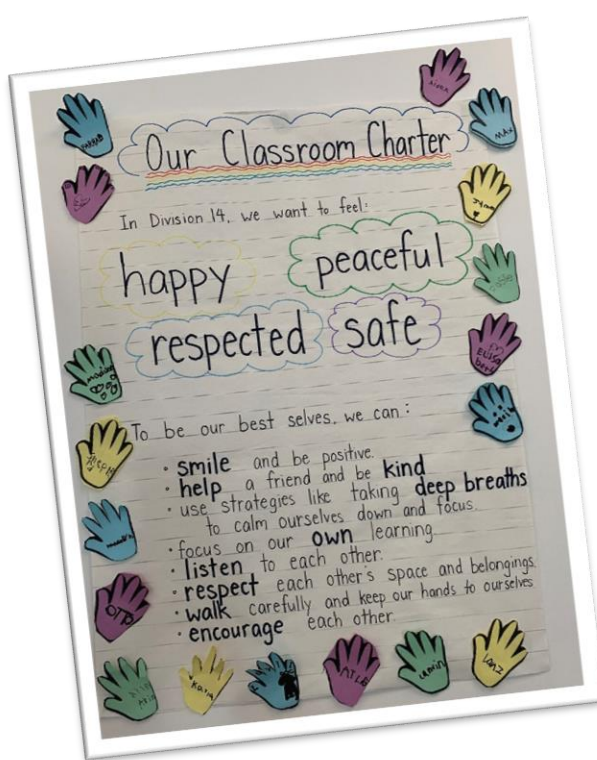 Our Classroom Charter
In Division 14, we want to feel:
happy peaceful
respected safe
To be our best selves, we can:
• smile and be positive.
• help a friend and be kind
• use strategies like taking deep breaths
to calm ourselves down and focus.
• focus on our own learning.
• listen to each other.
• respect each other's space and belongings.
• walk carefully and keep our hands to ourselves
• encourage each other.
MAX
OTTO